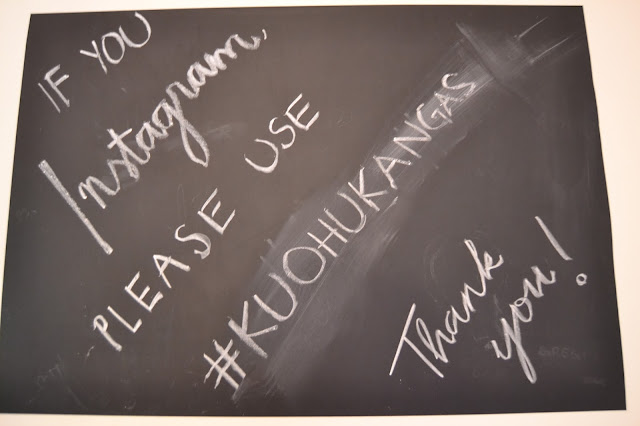 IF YOU
Instagram,
PLEASE USE
#KUOHUKANGAS
Thank
you!